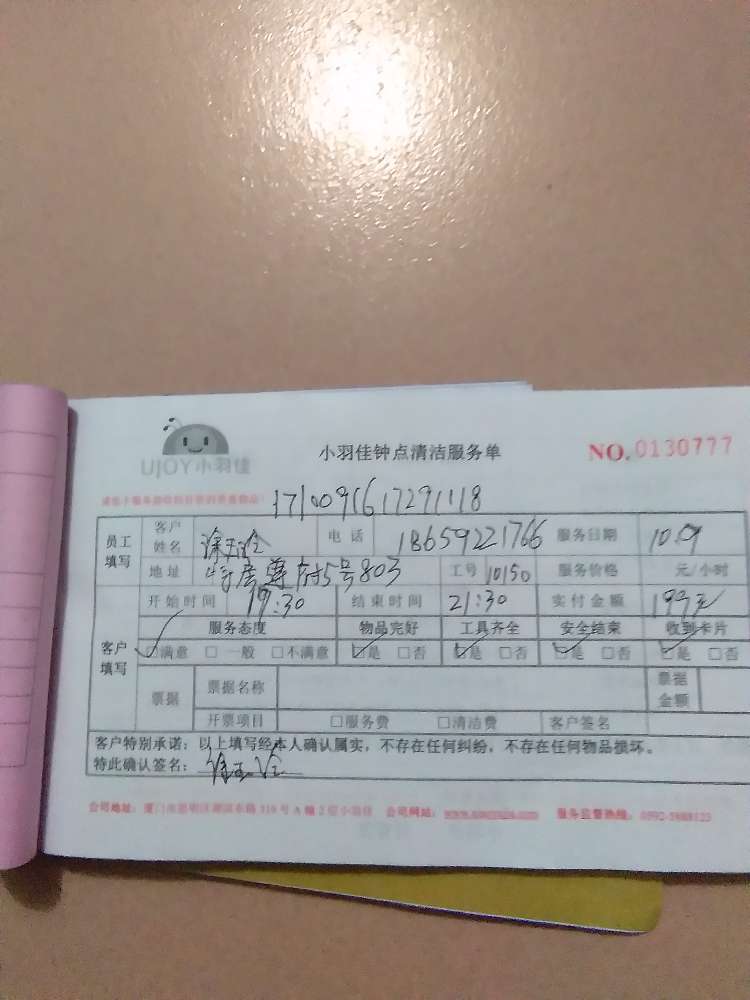 UJOY小羽佳
小羽佳钟点清洁服务单
NO.0130777
1710091617291118
员工填写 客户姓名 电话 18659221766 服务日期 10.9
地址 5号803 工号 10150 服务价格 元/小时
开始时间 17:30 结束时间 21:30 实付金额 199元
客户填写 服务态度 物品完好 工具齐全 安全结束 收到卡片
☑满意 □一般 □不满意 ☑是 □否 ☑是 □否 ☑是 □否 ☑是 □否
票据 票据名称 票据金额
开票项目 □服务费 □清洁费 客户签名
客户特别承诺：以上填写经本人确认属实，不存在任何纠纷，不存在任何物品损坏。
特此确认签名：
公司地址： 号A幢2层小羽佳 公司网站： 服务监督热线：